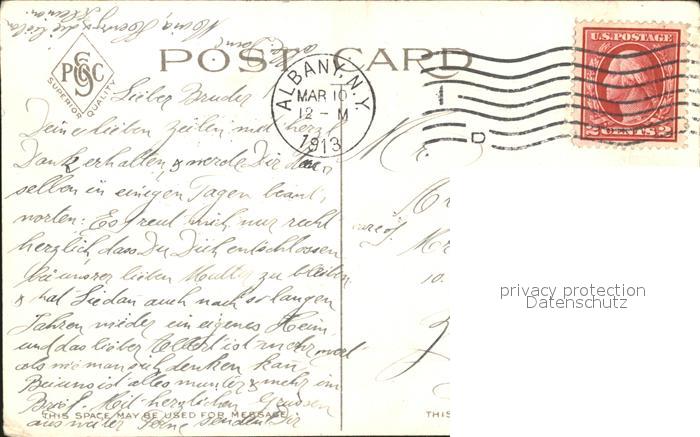 POST CARD
PSGC
SUPERIOR QUALITY
ALBANY, N.Y.
MAR 10
12 - M
1913
D
U.S. POSTAGE
2 CENTS 2
Lieber Bruder
Deine lieben Zeilen mit herzl
Dank erhalten & werde Dir
selben in einigen Tagen beant
worten. Es freut mich nur recht
herzlich dass Du Dich entschlossen
bei unsrer lieben Mutter zu bleiben
& hat Sie dan auch nach so langen
Jahren wieder ein eigenes Heim
und das liebe ist mehr wert
als niemand sich denken kan
Bei uns ist alles munter & mehr im
Brief. Mit herzlichen Grüssen
aus weiter Ferne senden Dir
THIS SPACE MAY BE USED FOR MESSAGE
care of
THIS
privacy protection
Datenschutz